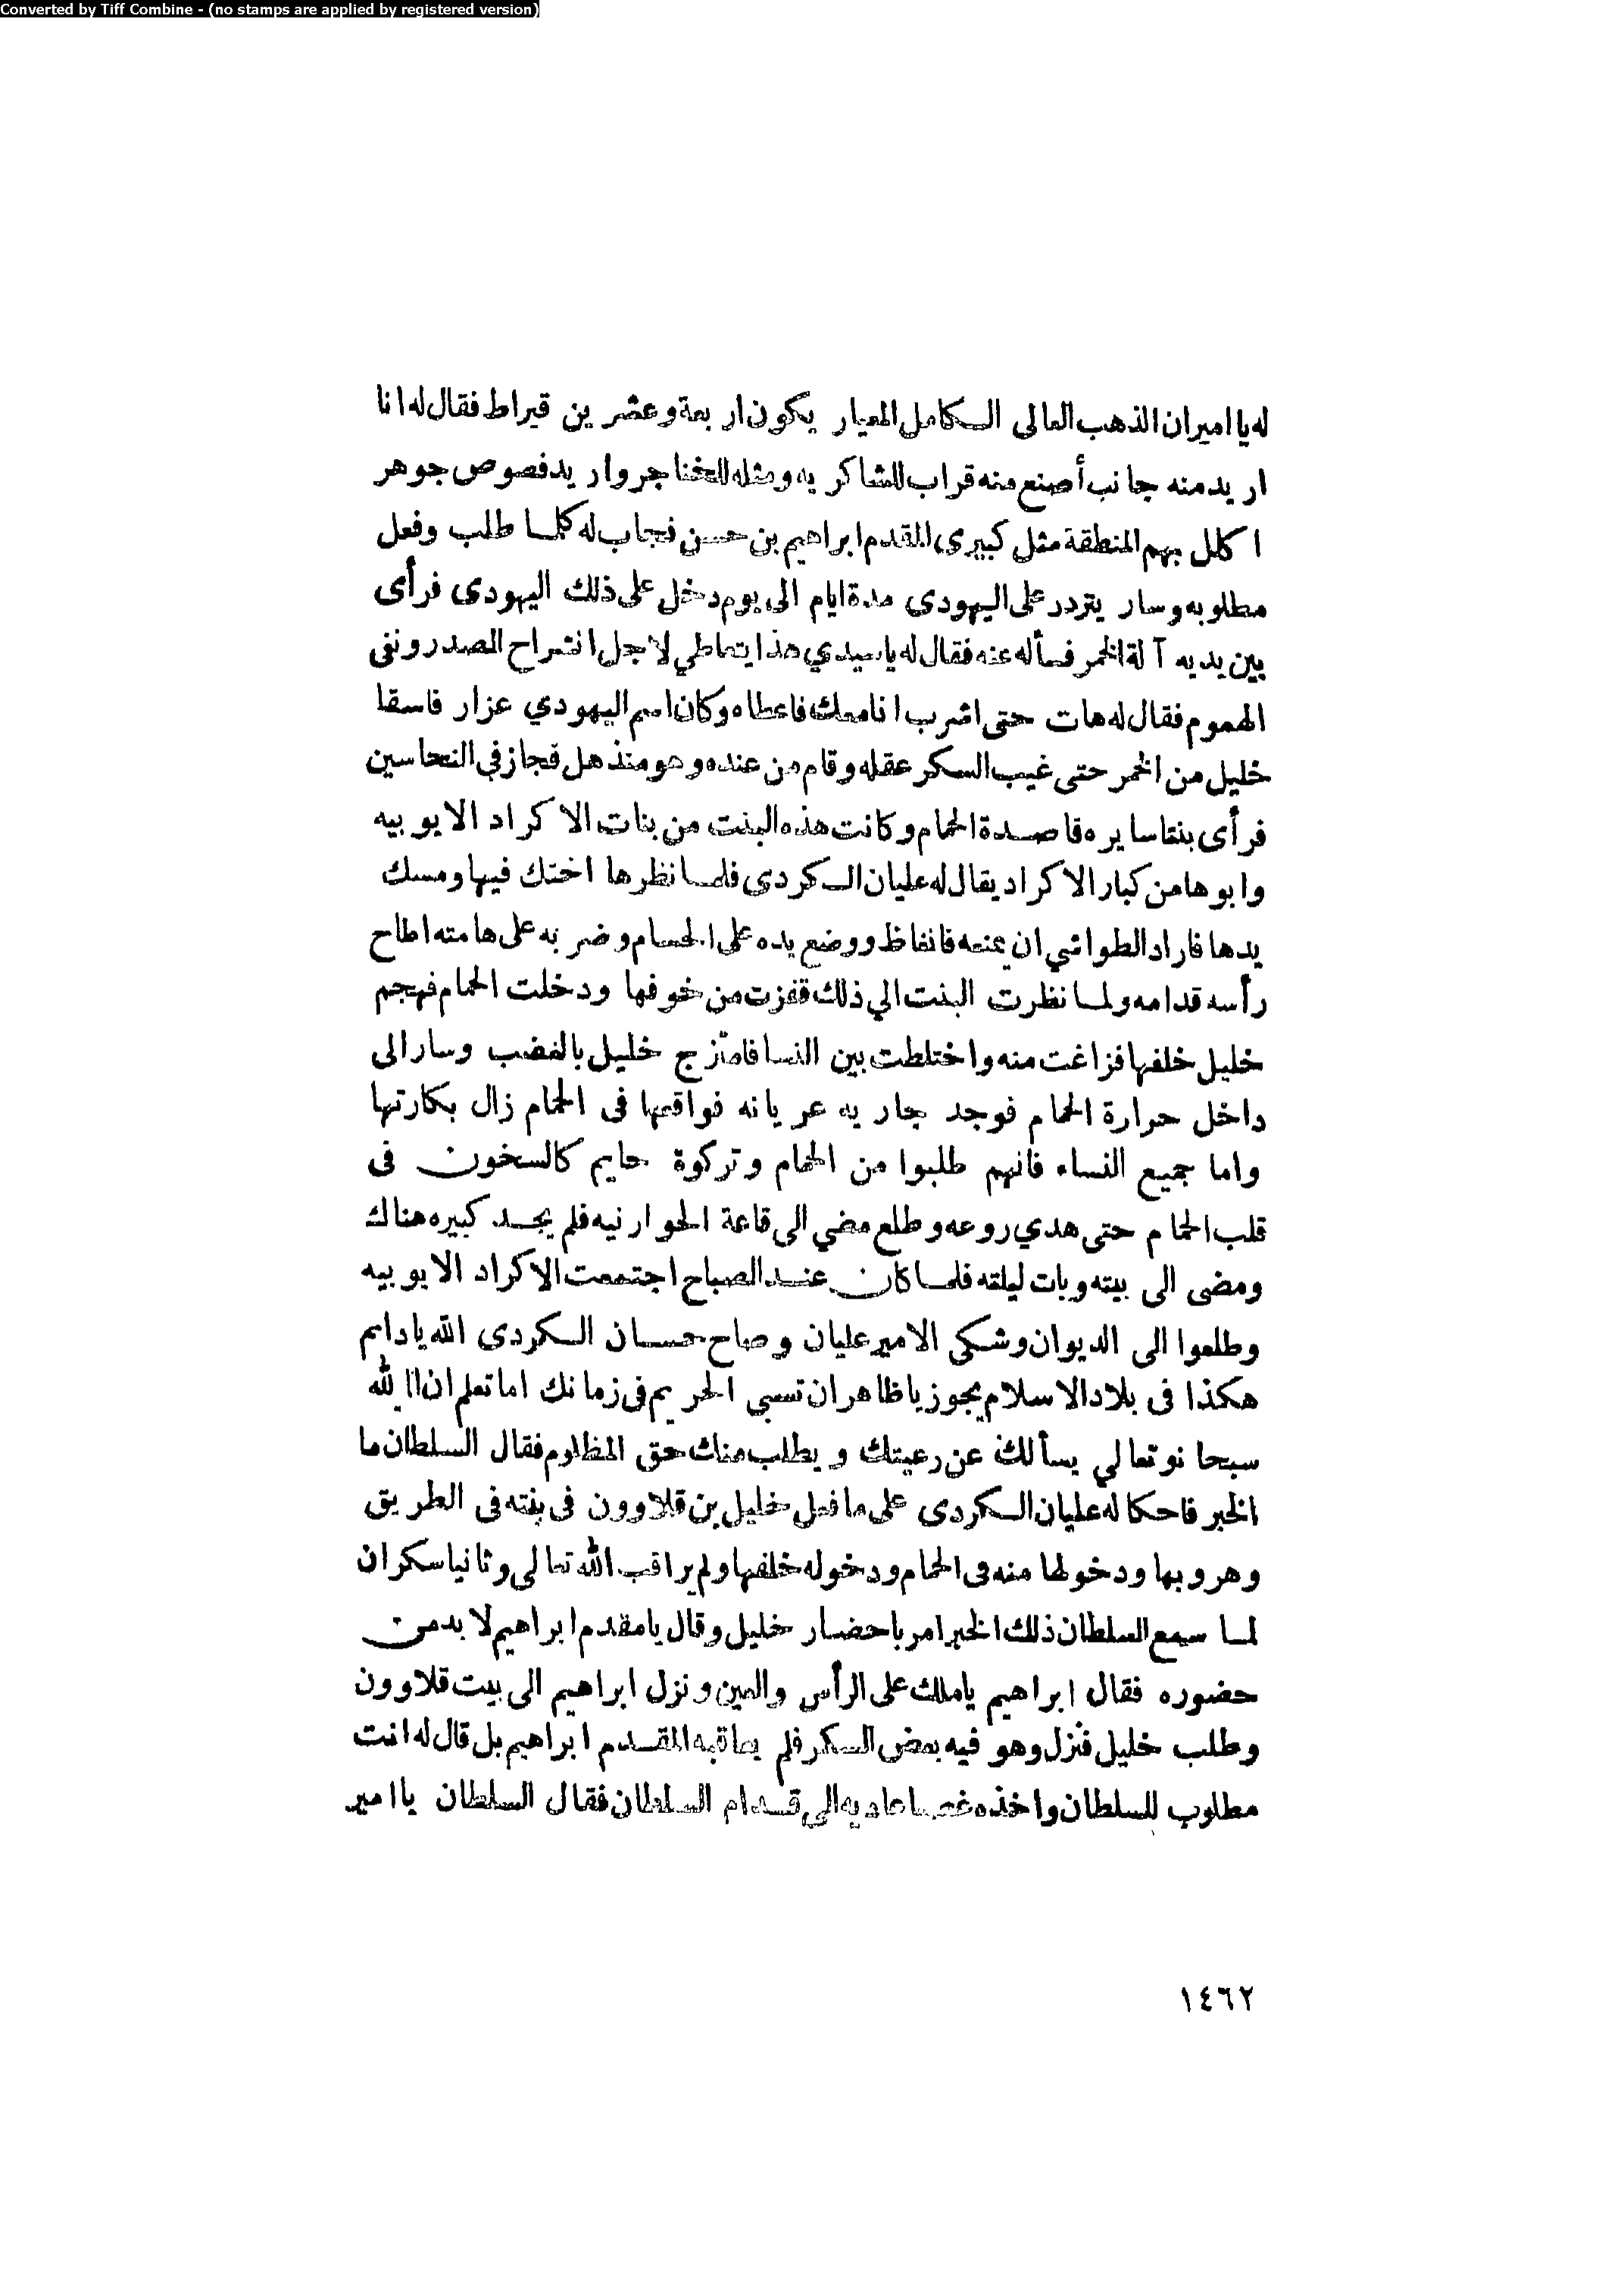 Converted by Tiff Combine - (no stamps are applied by registered version)
له يا امير ان الذهب العالى الكامل المعيار يكون اربعة وعشرين قيراط فقال له انا
اريد منه جانب أصنع منه قراب للشاكريه ومثله للخناجر واريد فصوص جوهر
اكلل بهم المنطقة مثل كبيرى المقدم ابراهيم بن حسن فجاب له كلما طلب وفعل
مطلوبه وسار يتردر على اليهودى مدة ايام الى يوم دخل على ذلك اليهودى فرأى
بين يديه آلة الخمر فسأله عنه فقال له يا سيدي هذا يتعاطي لاجل انشراح الصدر ونفى
الهموم فقال له هات حتى اشرب انا معك فاعطاه وكان اسم اليهودي عزار فاسقا
خليل من الخمر حتى غيب السكر عقله وقام من عنده وهو منذهل فجاز في النحاسين
فرأى بنتا سايره قاصدة الحمام وكانت هذه البنت من بنات الاكراد الايوبيه
وابوها من كبار الاكراد يقال له عليان الكردى فلما نظرها اختك فيها ومسك
يدها فاراد الطواشي ان يمنعه فانغاظ ووضع يده على الحسام وضربه على هامته اطاح
رأسه قدامه ولما نظرت البنت الي ذلك قفزت من خوفها ودخلت الحمام فهجم
خليل خلفها فزاغت منه واختلطت بين النسا فامتزج خليل بالغضب وسار الى
داخل حرارة الحمام فوجد جاريه عريانه فواقعها فى الحمام زال بكارتها
واما جميع النساء فانهم طلبوا من الحمام وتركوة حايم كالسخون فى
قلب الحمام حتى هدي روعه وطلع مضي الى قاعة الحوارنيه فلم يجد كبيره هناك
ومضى الى بيته وبات ليلته فلما كان عند الصباح اجتمعت الاكراد الايوبيه
وطلعوا الى الديوان وشكى الامير عليان وصاح حسان الكردى الله يا دايم
هكذا فى بلاد الاسلام يجوز يا ظاهر ان تسبي الحريم فى زمانك اما تعلم ان االله
سبحانو تعالي يسألك عن رعيتك ويطلب منك حق المظلوم فقال السلطان ما
الخبر فاحكا له عليان الكردى على ما فعل خليل بن قلاوون فى بنته فى الطريق
وهروبها ودخولها منه فى الحمام ودخوله خلفها ولم يراقب الله تعالى وثانيا سكران
لما سمع السلطان ذلك الخبر امر باحضار خليل وقال يا مقدم ابراهيم لا بد من
حضوره فقال ابراهيم يا ملك على الرأس والعين ونزل ابراهيم الى بيت قلاوون
وطلب خليل فنزل وهو فيه بعض السكر فلم يعاقبه المقدم ابراهيم بل قال له انت
مطلوب للسلطان واخذه غصبا عاد به الى قدام السلطان فقال السلطان يا امير
١٤٦٢